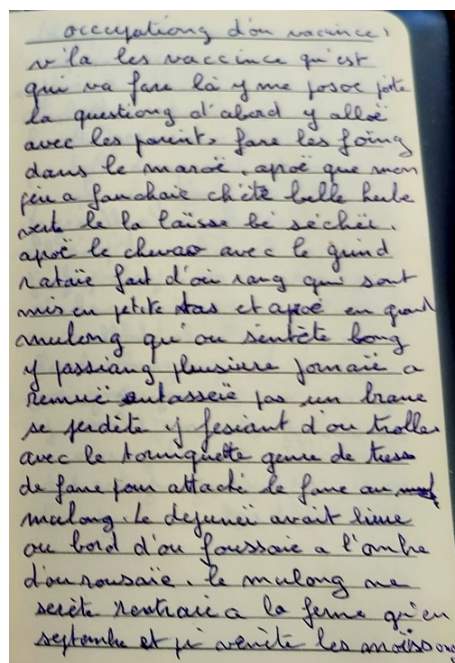 occupationg d'ou vacince,
v'la les vaccince qu'est
qui va fare là y me posoe
la questiong d'abord y alloë
avec les parents fare les foing
dans le maroë. apoë que mon
a fanchaie ch'éte belle herbe
verte le la laïsse bé séchëe.
apoë le chevao avec le grind
rataïe fait d'ou rang qui sont
mis en petite tas et apoë en grant
mulong qu'ou sentète bong
y passiang plusieure jornaië a
remuë entasseïe pas un brane
se perdète y fesiant d'ou trolles
avec le tourniquette genre de tresse
de fane pour attaché le fane au
mulong. Le dejuneï avait lieue
ou bord d'ou foussaie a l'ombre
d'ou rousaïe. le mulong ne
serète rentraie a la ferme qu'en
septembre et pi venète les moïssong